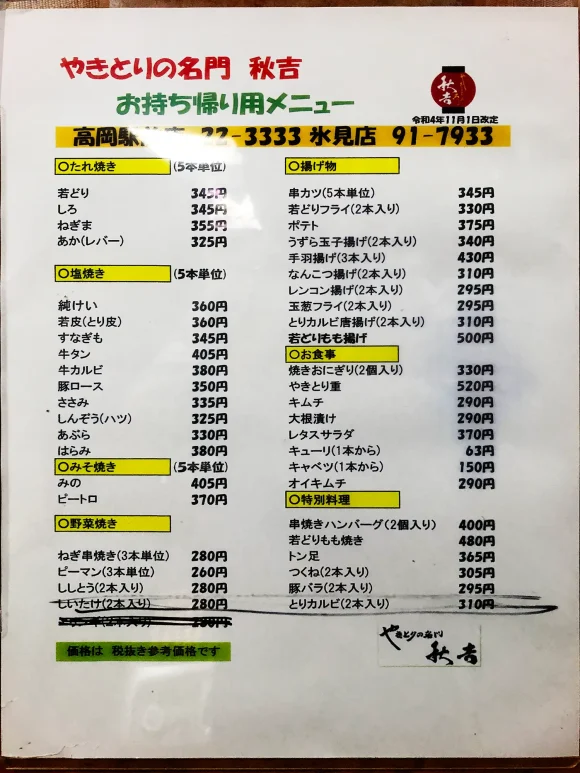 やきとりの名門 秋吉
お持ち帰り用メニュー
秋吉
令和4年11月1日改定
高岡駅 22-3333 氷見店 91-7933
○たれ焼き (5本単位)
若どり 345円
しろ 345円
ねぎま 355円
あか(レバー) 325円
○塩焼き (5本単位)
純けい 360円
若皮(とり皮) 360円
すなぎも 345円
牛タン 405円
牛カルビ 380円
豚ロース 350円
ささみ 335円
しんぞう(ハツ) 325円
あぶら 330円
はらみ 380円
○みそ焼き (5本単位)
みの 405円
ピートロ 370円
○野菜焼き
ねぎ串焼き(3本単位) 280円
ピーマン(3本単位) 260円
ししとう(2本入り) 280円
しいたけ(2本入り) 280円
(2本入り) 280円
価格は 税抜き参考価格です
○揚げ物
串カツ(5本単位) 345円
若どりフライ(2本入り) 330円
ポテト 375円
うずら玉子揚げ(2本入り) 340円
手羽揚げ(3本入り) 430円
なんこつ揚げ(2本入り) 310円
レンコン揚げ(2本入り) 295円
玉葱フライ(2本入り) 295円
とりカルビ唐揚げ(2本入り) 310円
若どりもも揚げ 500円
○お食事
焼きおにぎり(2個入り) 330円
やきとり重 520円
キムチ 290円
大根漬け 290円
レタスサラダ 370円
キューリ(1本から) 63円
キャベツ(1本から) 150円
オイキムチ 290円
○特別料理
串焼きハンバーグ(2個入り) 400円
若どりもも焼き 480円
トン足 365円
つくね(2本入り) 305円
豚バラ(2本入り) 295円
とりカルビ(2本入り) 310円
やきとりの名門
秋吉